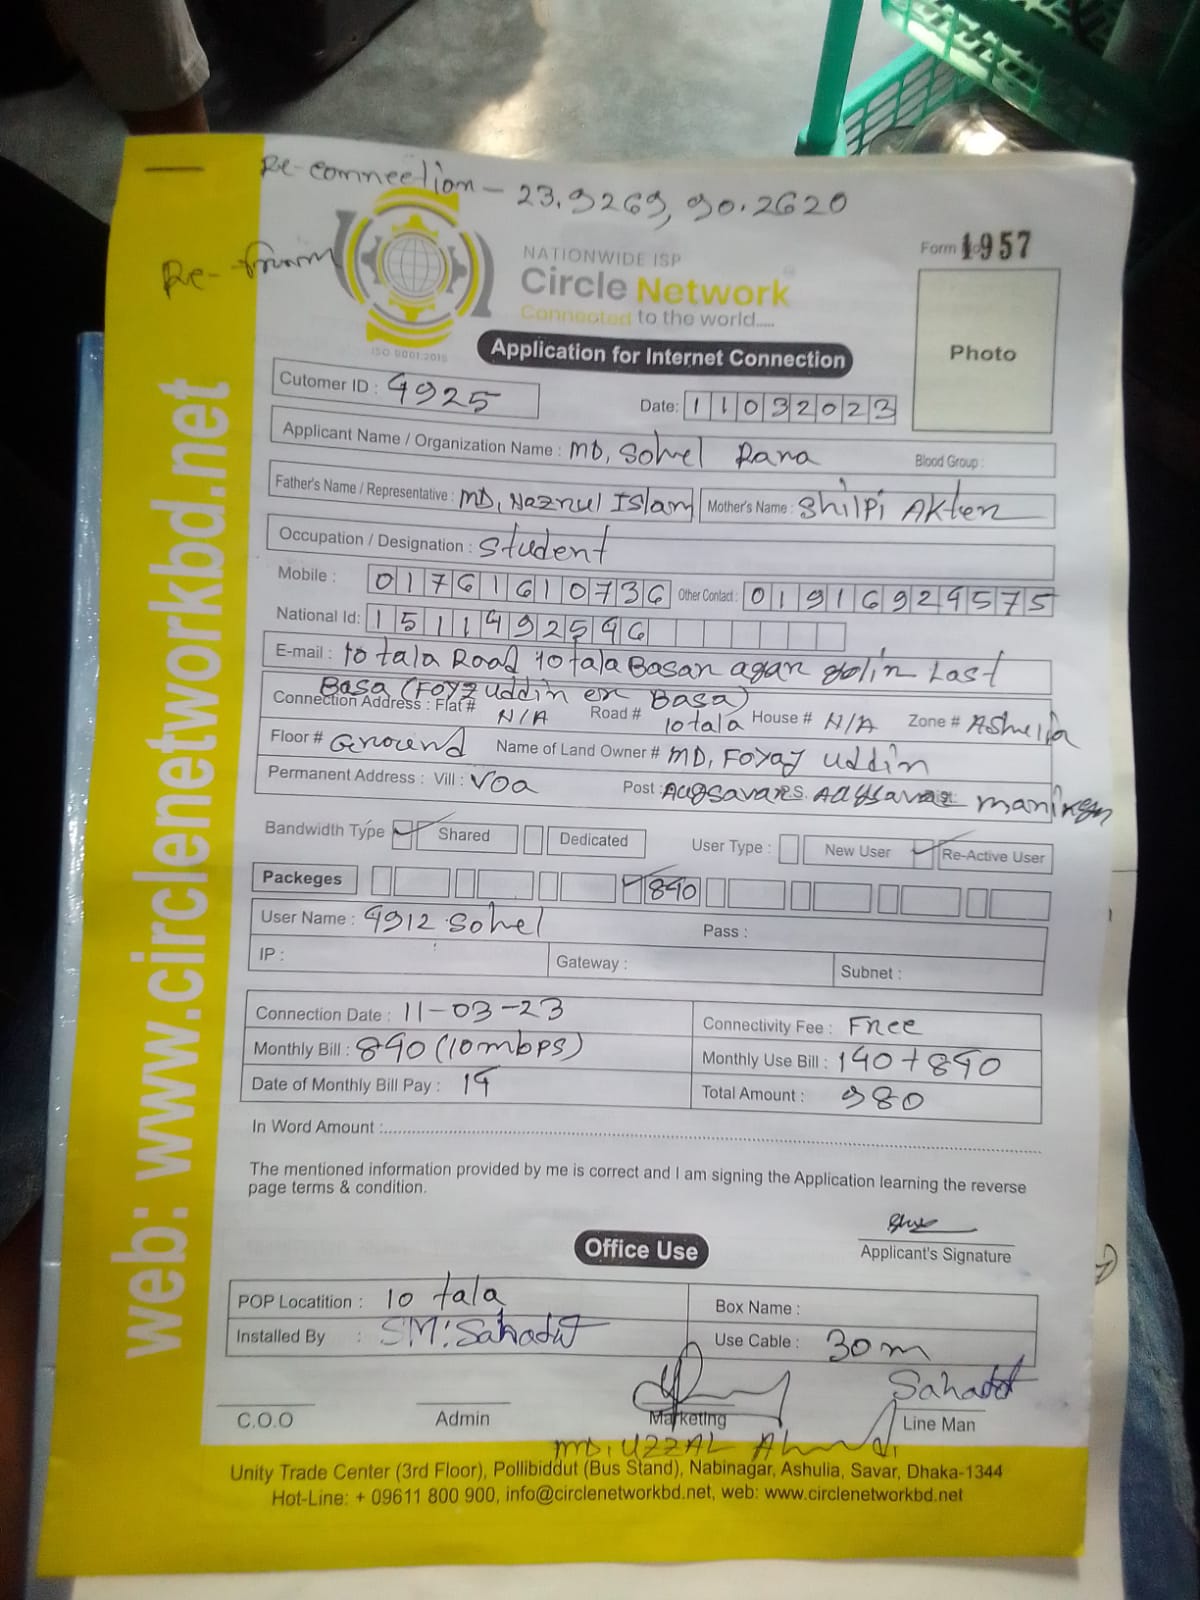 Re-connection - 23.9269, 90.2620
Re-
Form No 1957
NATIONWIDE ISP
Circle Network
Connected to the world.....
ISO 9001:2015
Application for Internet Connection
Photo
Cutomer ID : 4925
Date: 11032023
Applicant Name / Organization Name : MD, Sohel Rana
Blood Group :
Father's Name / Representative : MD, Nazrul Islam
Mother's Name : Shilpi Akter
Occupation / Designation : Student
Mobile : 01761610736
Other Contact : 01916924575
National Id: 1511492546
E-mail : 10 tala Road 10 tala Basar agar golir Last
Basa (Foyz uddin er Basa)
Connection Address : Flat# N/A Road # 10 tala House # N/A Zone # Ashulia
Floor # Ground Name of Land Owner # MD, Foyaj uddin
Permanent Address : Vill : VOa Post :
Bandwidth Type Shared Dedicated User Type : New User Re-Active User
Packeges 840
User Name : 4912 Sohel Pass :
IP : Gateway : Subnet :
Connection Date : 11-03-23
Connectivity Fee : Free
Monthly Bill : 840 (10mbps)
Monthly Use Bill : 140 + 840
Date of Monthly Bill Pay : 14
Total Amount : 980
In Word Amount :
The mentioned information provided by me is correct and I am signing the Application learning the reverse
page terms & condition.
Applicant's Signature
Office Use
POP Locatition : 10 tala
Box Name :
Installed By : SM: Sahadat
Use Cable : 30m
Sahadat
C.O.O Admin Marketing Line Man
MD, UZZAL Ahmed
Unity Trade Center (3rd Floor), Pollibiddut (Bus Stand), Nabinagar, Ashulia, Savar, Dhaka-1344
Hot-Line: + 09611 800 900, info@circlenetworkbd.net, web: www.circlenetworkbd.net
web: www.circlenetworkbd.net